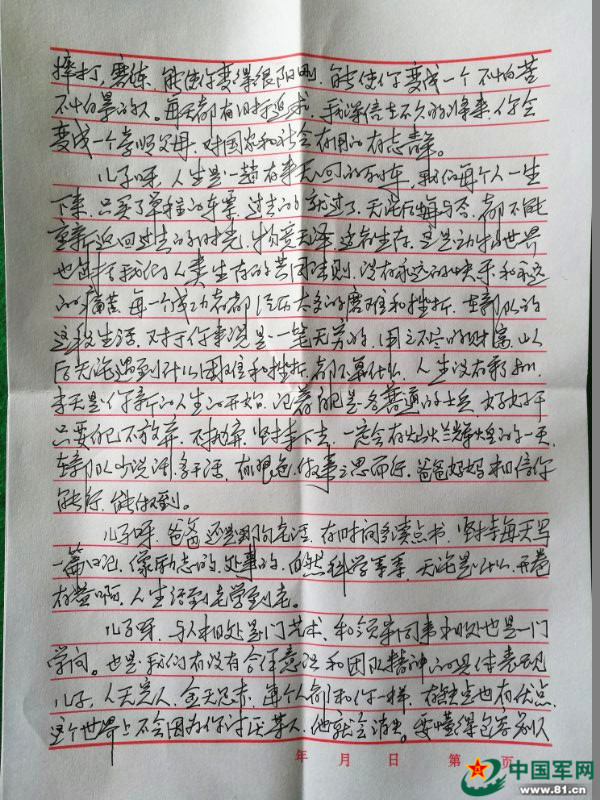 摔打，磨练，能使你变得很阳刚，能使你变成一个不怕苦
不怕累的人。每天都有目标追求，我深信在不久的将来，你会
变成一个孝顺父母，对国家和社会有用的有志青年。
儿子呀，人生是一趟有来无回的列车，我们每个人一生
下来，只买了单程的车票，过去的就过了，无论后悔与否，都不能
重新返回过去的时光，物竞天择，适者生存，这是动物世界
也是我们人类生存的共同法则，没有永远的快乐和永远
的痛苦，每一个成功者都经历太多的磨难和挫折，在部队的
这段生活，对于你来说是一笔无穷的，用之不尽的财富，以
后无论遇到什么困难和挫折，都不算什么，人生没有彩排，
今天是你新的人生的开始，记着自己是名普通的士兵，好好干
只要自己不放弃，不抛弃，坚持下去，一定会有灿烂辉煌的一天，
在部队少说话，多干活，有眼色，做事三思而行，爸爸妈妈相信你
能行，能做到。
儿子呀，爸爸还是那句老话，有时间多读点书，坚持每天写
一篇日记，像励志的，处事的，自然科学等等，无论是什么，开卷
有益啊，人生活到老学到老。
儿子呀，与人相处是门艺术，和领导同事相处也是一门
学问。也是我们有没有合作意识和团队精神的具体表现
儿子，人无完人，金无足赤，每个人都和你一样，有缺点也有优点，
这个世界上不会因为你讨厌某人，他就会消失。要懂得包容别人
年 月 日 第 页
中国军网
www.81.cn